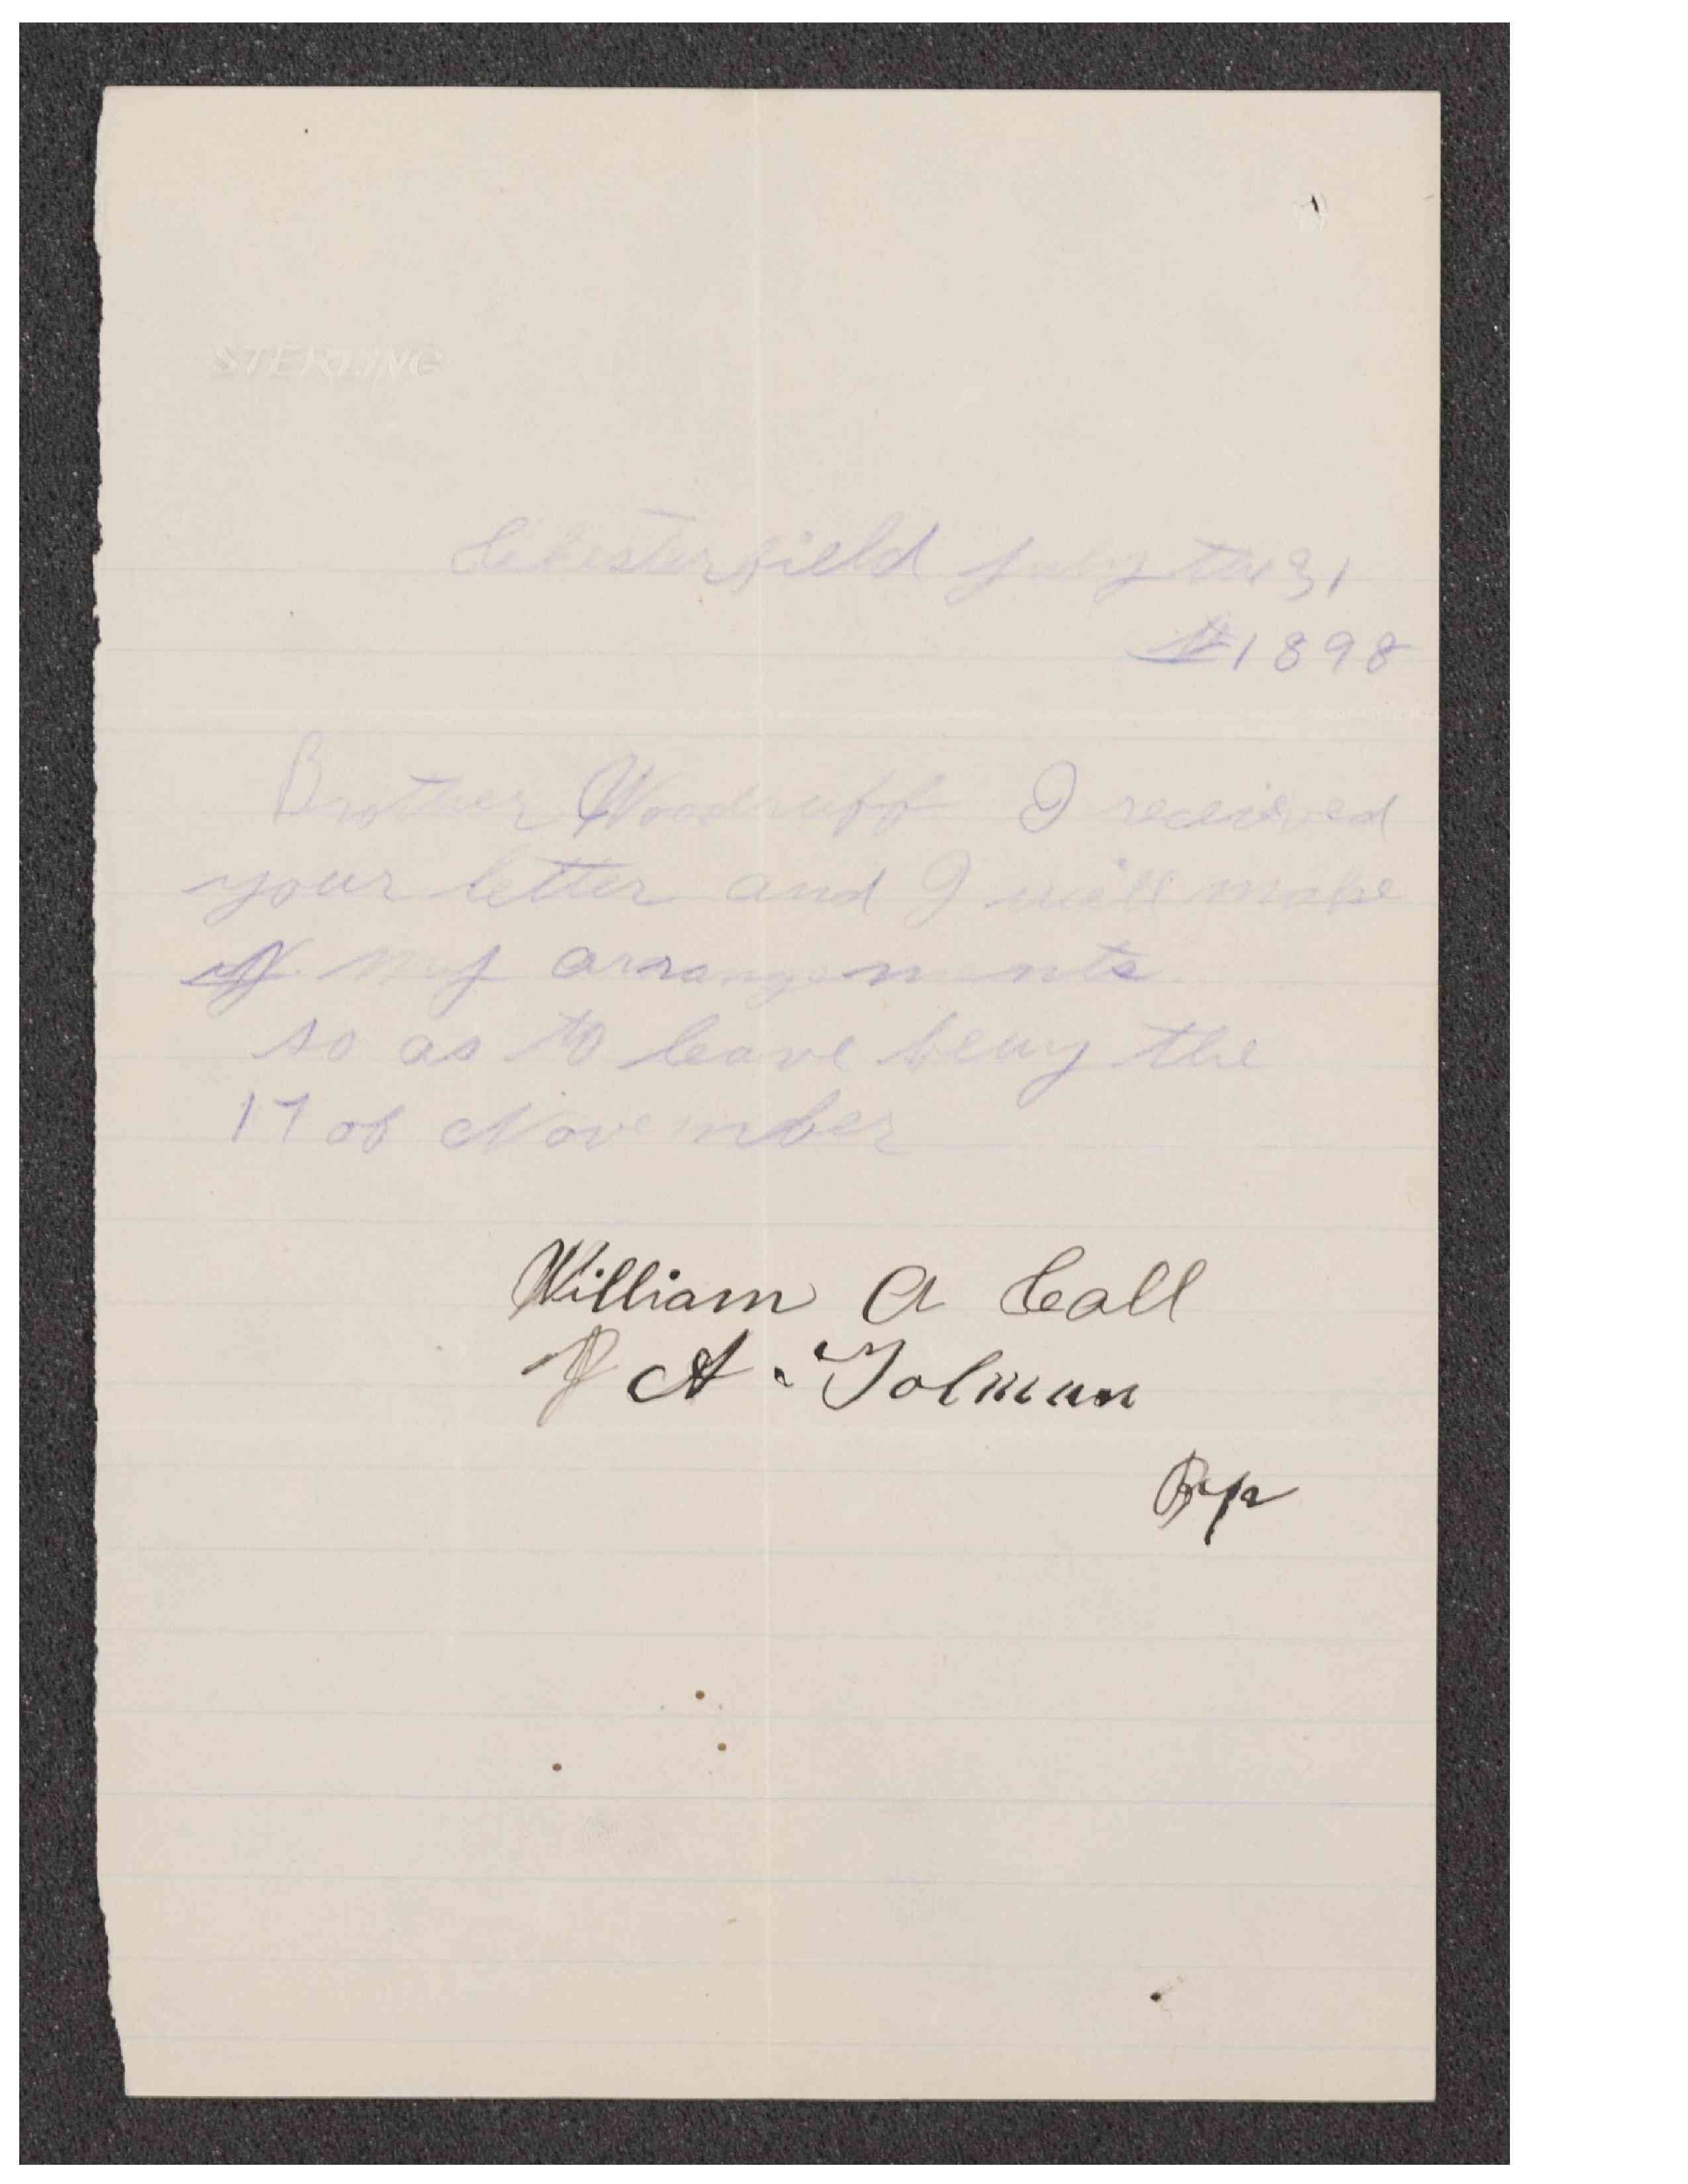 STERLING
Chesterfield July the 31
1898
Brother Woodruff I received
your letter and I will make
my arrangements
so as to leave the
17 of November
William A Call
J A. Tolman
Bp